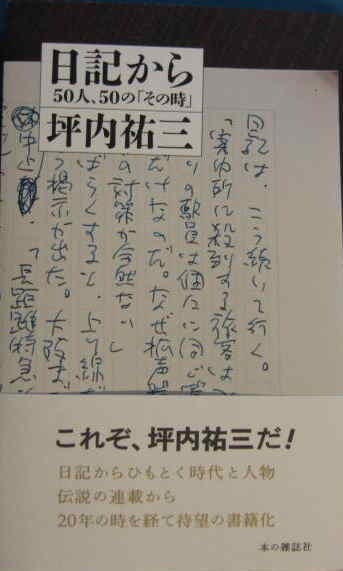 日記から
50人、50の「その時」
坪内祐三
日記は、こう続いて行く。
「案内所に殺到する旅客は
りの駅員は個々に同じ
だけなのだ。なぜ拡声
の対策が全然ないし
ばらくすると、上り線だ
掲示が出た。大阪ま
「長距離特急
これぞ、坪内祐三だ!
日記からひもとく時代と人物
伝説の連載から
20年の時を経て待望の書籍化
本の雑誌社